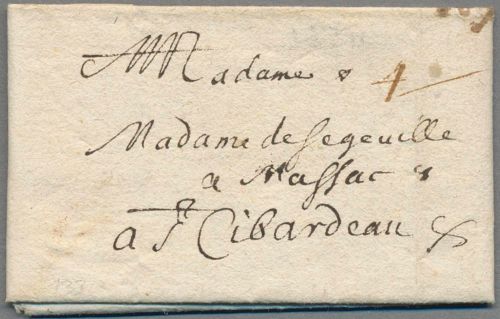 Madame 4
Madame de Segeuille
a Massac
a St Cibardeau
133